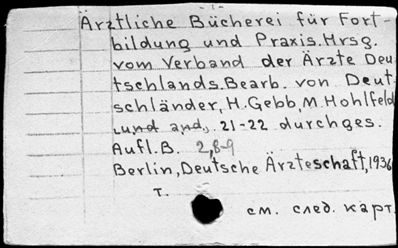 Ärztliche Bücherei für Fort-
bildung und Praxis. Hrsg.
vom Verband der Ärzte Deu
tschlands. Bearb. von Deut-
schländer, H. Gebb, M. Hohlfeld
und and., 21-22 durchges.
Aufl. B. 2,8-9
Berlin, Deutsche Ärzteschaft, 1936
т.
см. след. карт.